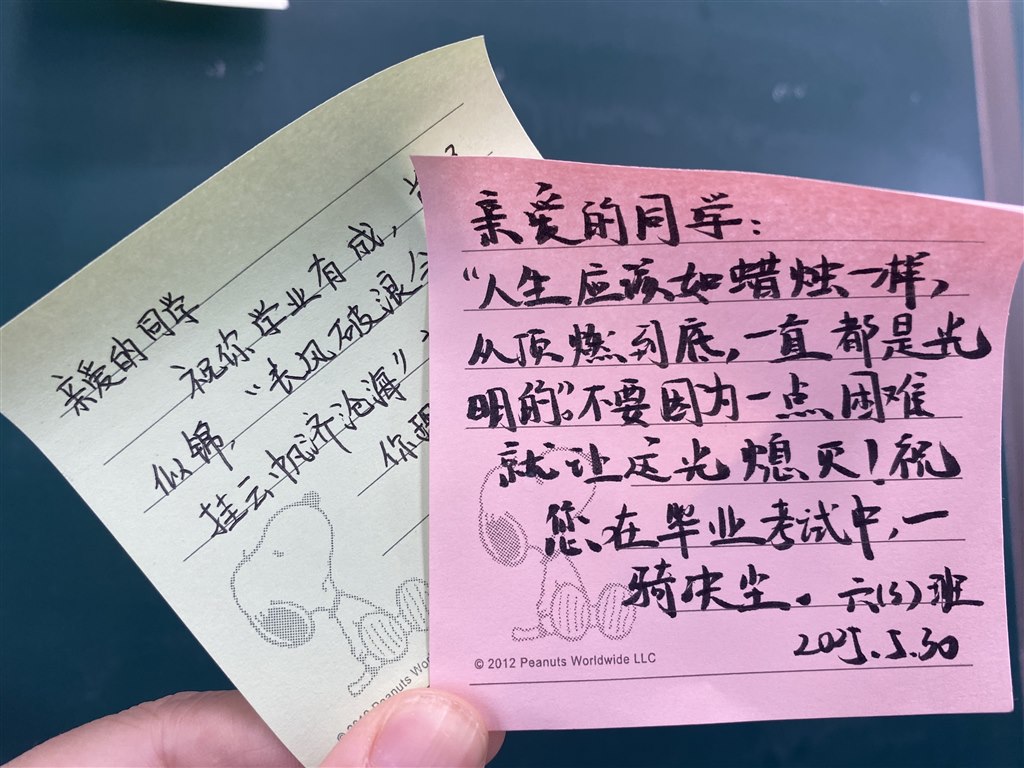 亲爱的同学
祝你学业有成，
似锦，“长风破浪会
挂云帆济沧海”
你
© 2012 Peanuts Wor
亲爱的同学：
“人生应该如蜡烛一样，
从顶燃到底，一直都是光
明的”。不要因为一点困难
就让这光熄灭！祝
您在毕业考试中，一
骑决尘。六(5)班
2025.5.30
© 2012 Peanuts Worldwide LLC